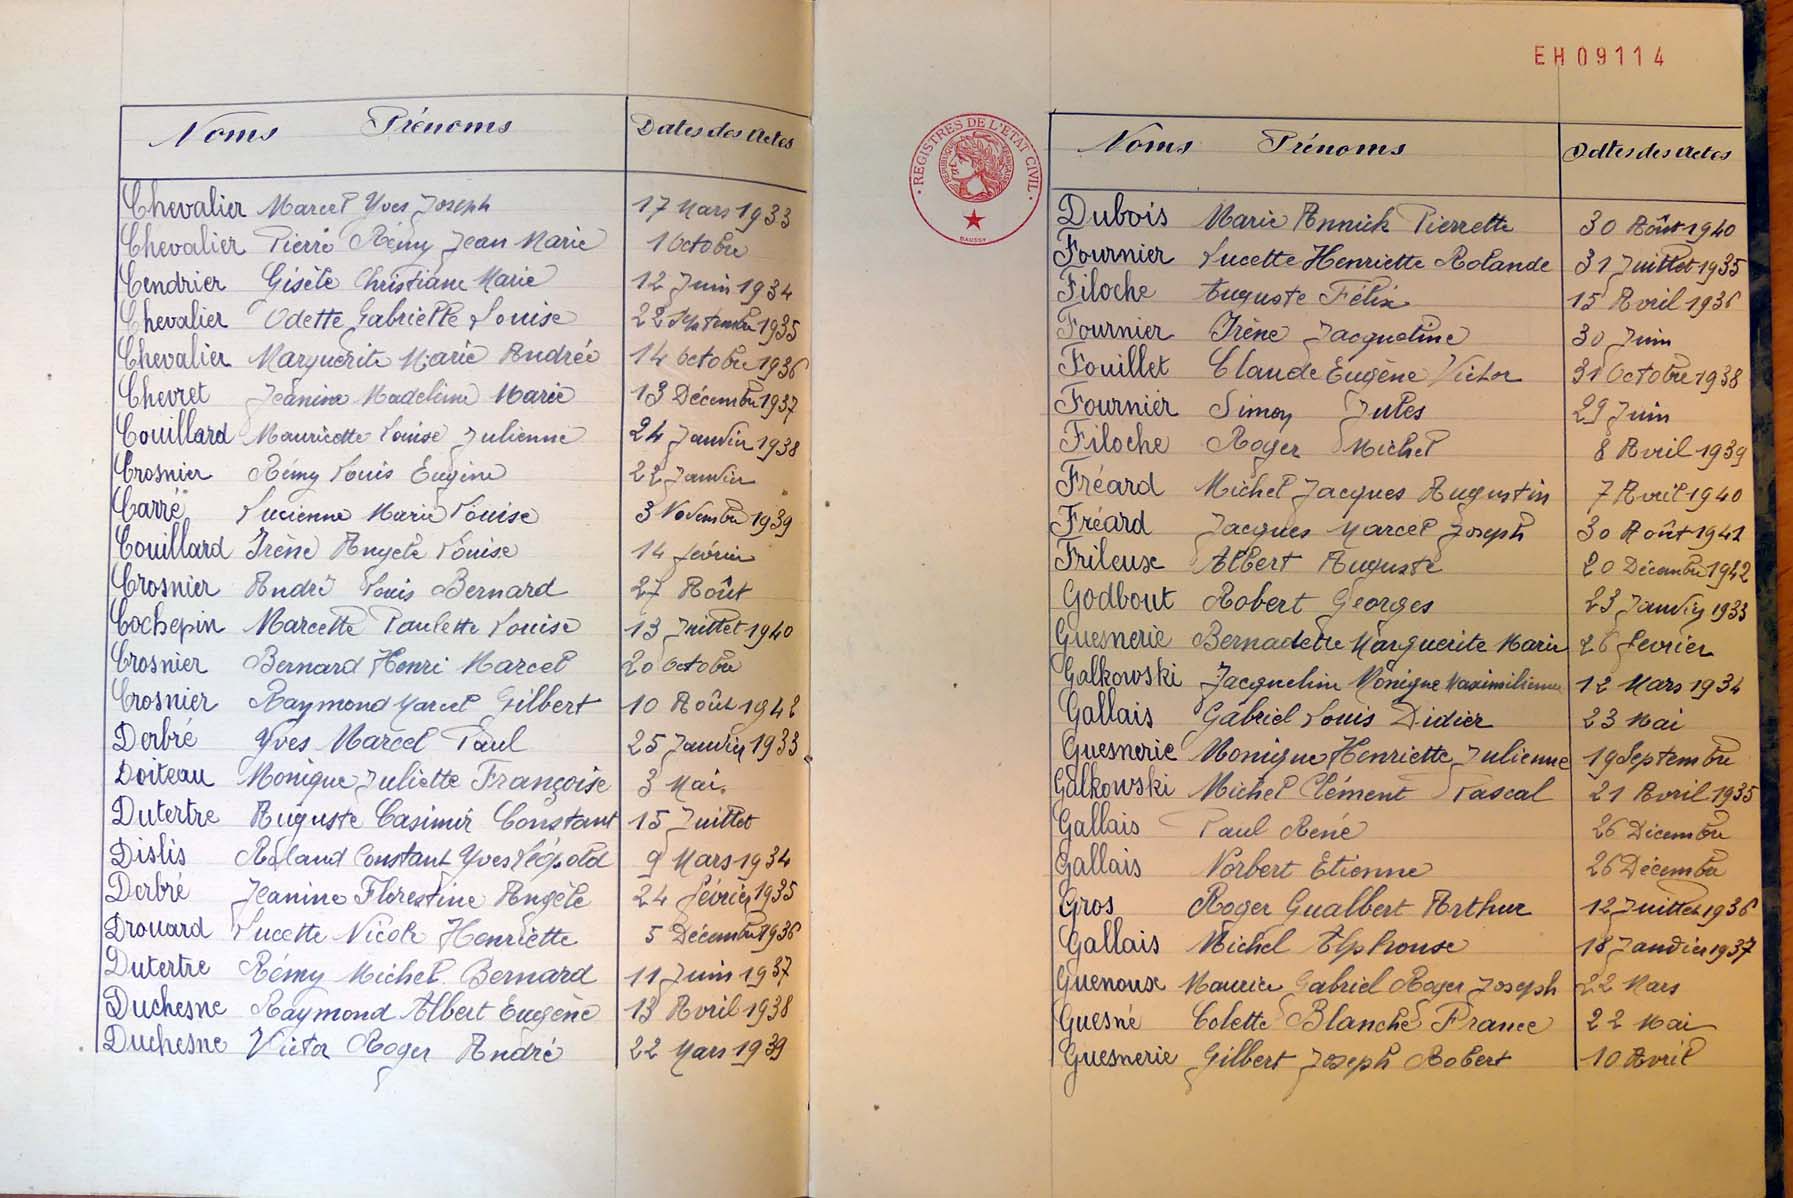 Noms Prénoms Dates des Actes
Chevalier Marcel Yves Joseph 17 Mars 1933
Chevalier Pierre Rémy Jean Marie 1 Octobre
Cendrier Gisèle Christiane Marie 12 Juin 1934
Chevalier Odette Gabrielle Louise 22 Septembre 1935
Chevalier Marguerite Marie Andrée 14 Octobre 1936
Chevret Jeanine Madeleine Marie 13 Décembre 1937
Couillard Mauricette Louise Julienne 24 Janvier 1938
Crosnier Rémy Louis Eugène 22 Janvier
Carré Lucienne Marie Louise 3 Novembre 1939
Couillard Irène Angèle Louise 14 février
Crosnier André Louis Bernard 27 Août
Cochepin Marcelle Paulette Louise 13 Juillet 1940
Crosnier Bernard Henri Marcel 20 Octobre
Crosnier Raymond Marcel Gilbert 10 Août 1942
Derbré Yves Marcel Paul 25 Janvier 1933
Doiteau Monique Juliette Françoise 3 Mai.
Dutertre Auguste Casimir Constant 15 Juillet
Dislis Roland Constant Yves Léopold 9 Mars 1934
Derbré Jeanine Florestine Angèle 24 février 1935
Drouard Lucette Nicole Henriette 5 Décembre 1936
Dutertre Rémy Michel Bernard 11 Juin 1937
Duchesne Raymond Albert Eugène 13 Avril 1938
Duchesne Victor Roger André 22 Mars 1939
EH09114
REGISTRES DE L'ÉTAT CIVIL
RÉPUBLIQUE FRANÇAISE
DAUSSY
Noms Prénoms Dates des Actes
Dubois Marie Annick Pierrette 30 Août 1940
Fournier Lucette Henriette Rolande 31 Juillet 1935
Filoche Auguste Félix 15 Avril 1936
Fournier Irène Jacqueline 30 Juin
Fouillet Claude Eugène Victor 31 Octobre 1938
Fournier Simon Jules 29 Juin
Filoche Roger Michel 8 Avril 1939
Fréard Michel Jacques Augustin 7 Avril 1940
Fréard Jacques Marcel Joseph 30 Août 1942
Frileux Albert Auguste 20 Décembre 1942
Godbout Robert Georges 23 Janvier 1933
Guesnerie Bernadette Marguerite Marie 26 février
Galkowski Jacqueline Monique Maximilienne 12 Mars 1934
Gallais Gabriel Louis Didier 23 Mai
Guesnerie Monique Henriette Julienne 19 Septembre
Galkowski Michel Clément Pascal 21 Avril 1935
Gallais Paul René 26 Décembre
Gallais Norbert Etienne 26 Décembre
Gros Roger Gualbert Arthur 12 Juillet 1936
Gallais Michel Alphonse 18 Janvier 1937
Guenoux Maurice Gabriel Roger Joseph 22 Mars
Guesné Colette Blanche France 22 Mai
Guesnerie Gilbert Joseph Robert 10 Avril